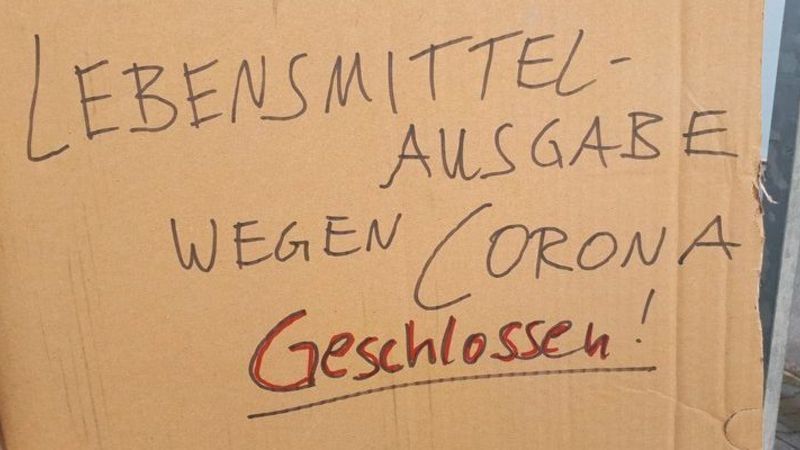 LEBENSMITTEL-
AUSGABE
WEGEN CORONA
Geschlossen!